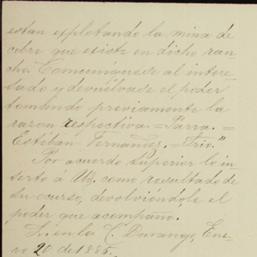 estan esplotando la mina de
cobre que existe en dicho ran-
cho. Comuníquese al intere-
sado y devuélvase el poder
tomando previamente la
razon respectiva = Parra. =
Estéban Fernandez. = Srio."
Por acuerdo Superior lo in-
serto á U. como resultado de
su ocurso, devolviéndole el
poder que acompaño.
L. en la C. Durango, Ene-
ro 20 de 1885.